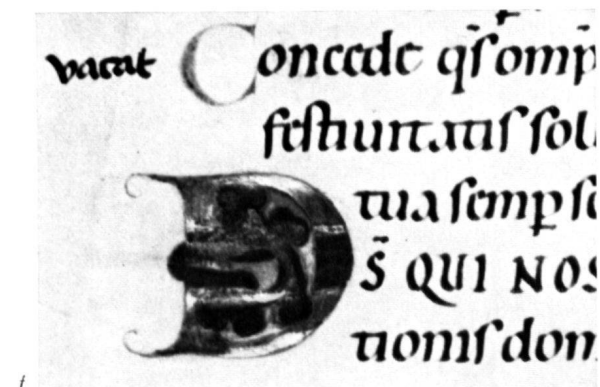 vacat Concede qſ omp̄
feſtiuitatis ſol
tua ſemp ſe
DS̄ QUI NOS
tioniſ dom
f